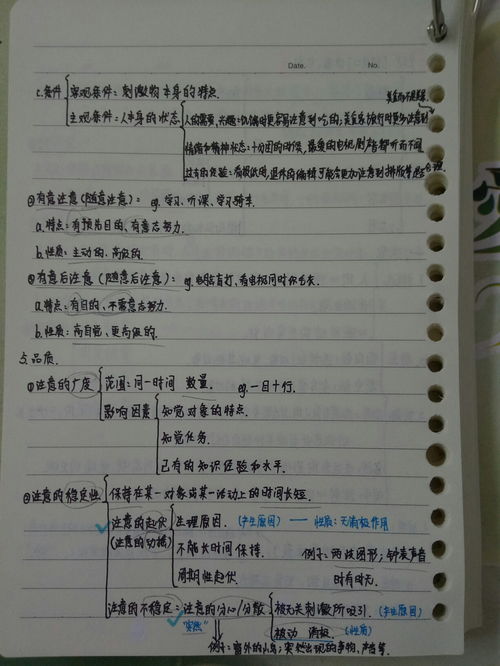 Date. No.
c.条件 客观条件：刺激物本身的特点.
主观条件：人本身的状态 人的需要、兴趣：饥饿时更容易注意到吃的；
情绪和精神状态：十分困的时候，最爱的电视剧声音都听而不闻
过去的经验：看报纸时，退休的编辑可能会更加注意到排版等是否合理.
②有意注意（随意注意）：eg.学习、听课、学习骑车.
a.特点：有预先目的、有意志努力.
b.性质：主动的、高级的.
③有意后注意（随意后注意）：eg.电脑盲打、看电视同时织毛衣.
a.特点：有目的、不需意志努力.
b.性质：高自觉、更高级的.
5.品质.
①注意的广度 范围：同一时间 数量. eg.一目十行.
影响因素 知觉对象的特点.
知觉任务.
已有的知识经验和水平.
②注意的稳定性 保持在某一对象或某一活动上的时间长短.
注意的起伏 生理原因.（产生原因）—— 性质：无消极作用
（注意的动摇） 不能长时间保持. 例子：两歧图形；钟表声音
周期性起伏 时有时无.
注意的不稳定：注意的分心/分散 被无关刺激所吸引.（产生原因）
"突然" 被动 消极.（性质）
例子：窗外的小鸟；突然出现的事物、声音等.